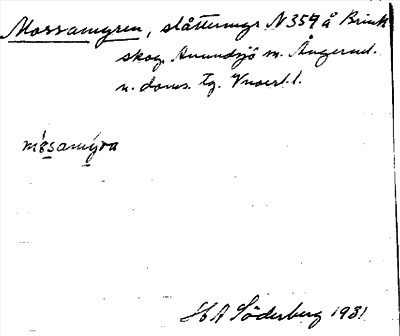 Mossamyren, slåttermyr N 354 å Brink
skog, Anundsjö sn. Ångerml.
n. doms. Tg.
mòsamýra
HA Söderberg 1931